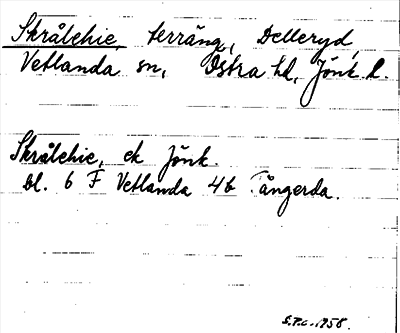 Skrålehie, terräng, Delleryd,
Vetlanda sn, Östra hd, Jönk. l.
Skrålehie, ek Jönk.
bl. 6 F Vetlanda 4b Tångerda.
S.P.C. 1958.